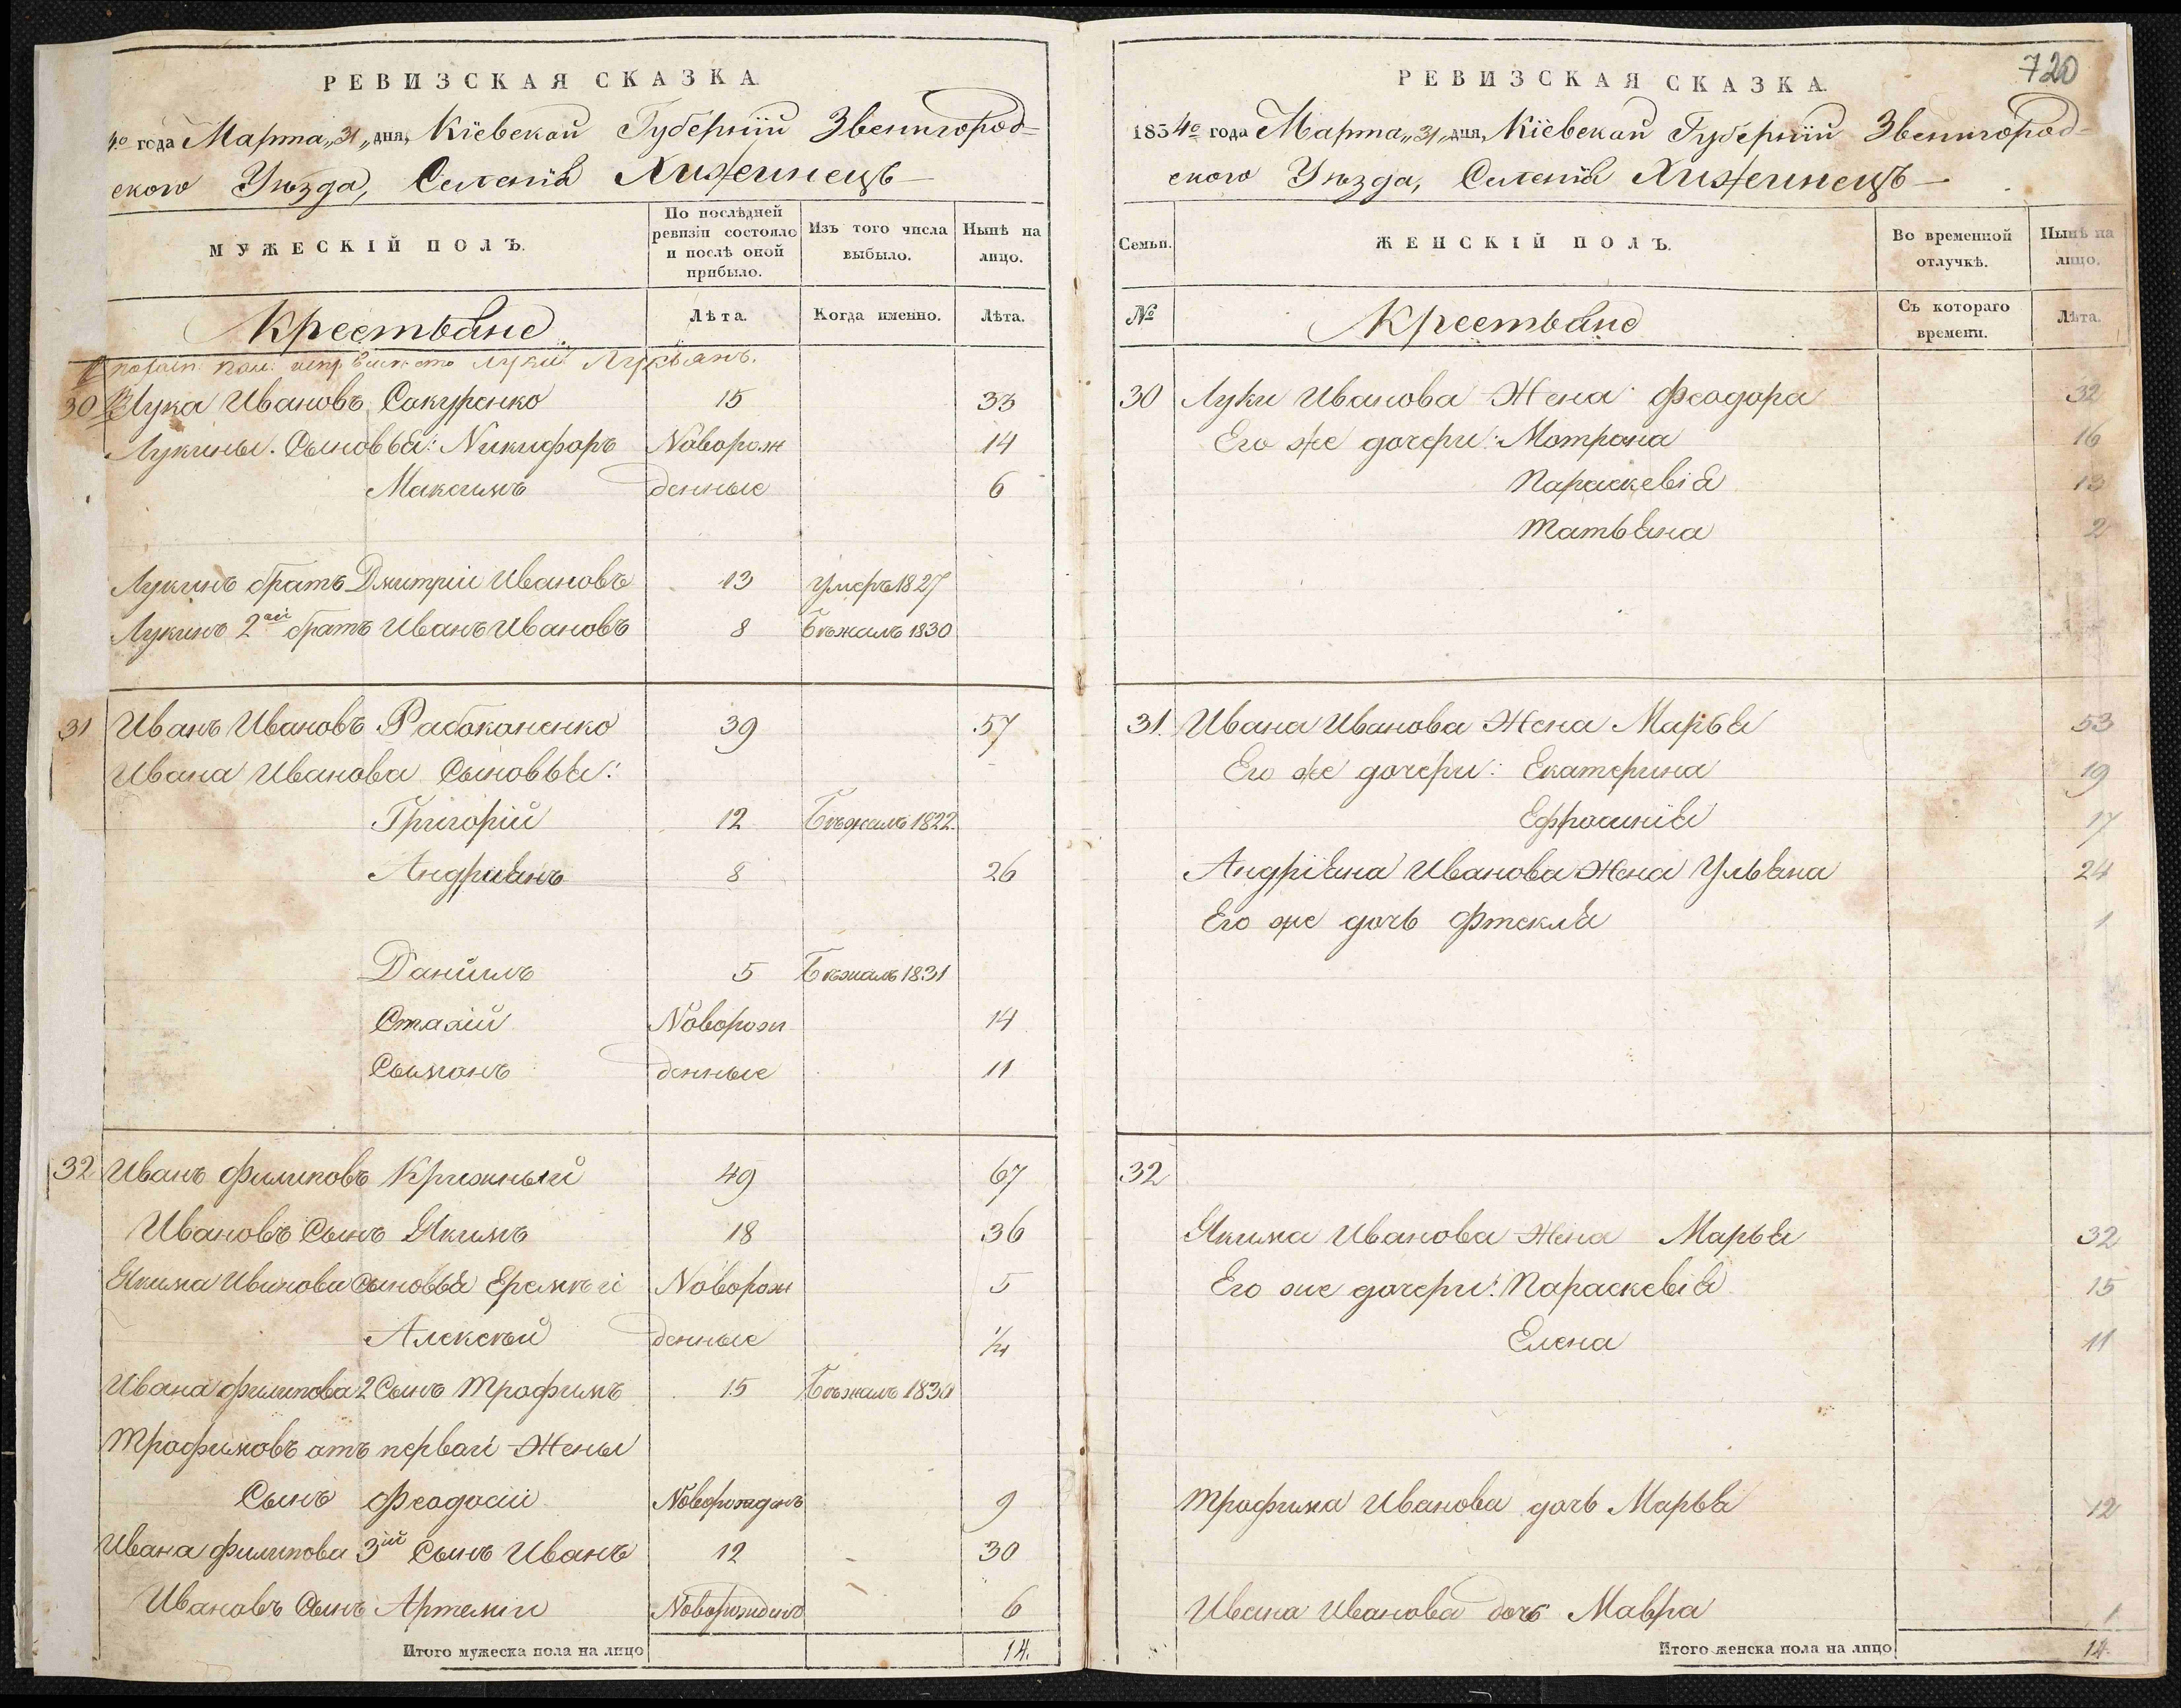 РЕВИЗСКАЯ СКАЗКА
4го года Марта „31„ дня, Кіевской Губерніи Звенигород-
ского Уѣзда, Селенія Хижинецъ
МУЖЕСКІЙ ПОЛЪ.
По послѣдней ревизіи состояло и послѣ оной прибыло.
Изъ того числа выбыло.
Нынѣ на лицо.
Крестьяне
Лѣта.
Когда именно.
Лѣта.
вмѣсто Луки Лукьянъ.
30 Лука Ивановъ Сокуренко 15 33
Лукины Сыновья: Никифоръ Новорож 14
Максимъ денные 6
Лукинъ братъ Дмитрій Ивановъ 13 Умеръ 1827
Лукинъ 2ой братъ Иванъ Ивановъ 8 Бѣжалъ 1830
31 Иванъ Ивановъ Рабоконенко 39 57
Ивана Иванова Сыновья:
Григорій 12 Бѣжалъ 1822
Андріянъ 8 26
Даніилъ 5 Бѣжалъ 1831
Стахій Новорож 14
Сымонъ денные 11
32 Иванъ Филиповъ Крижный 49 67
Ивановъ Сынъ Якимъ 18 36
Якима Иванова Сыновья Еремѣй Новорож 5
Алексѣй денные 1/4
Ивана Филипова 2 Сынъ Трофимъ 15 Бѣжалъ 1830
Трофимовъ отъ первой Жены
Сынъ Феодосій Новорожденъ 9
Ивана Филипова 3ій Сынъ Иванъ 12 30
Ивановъ Сынъ Артемій Новорожденъ 6
Итого мужеска пола на лицо 14.
720
РЕВИЗСКАЯ СКАЗКА.
1834го года Марта „31„ дня, Кіевской Губерніи Звенигород-
ского Уѣзда, Селенія Хижинецъ
Семьи.
ЖЕНСКІЙ ПОЛЪ.
Во временной отлучкѣ.
Нынѣ на лицо.
№
Крестьяне
Съ котораго времени.
Лѣта.
30 Луки Иванова Жена Феодора 32
Его же дочери: Мотрона 16
Параскевія 13
Татьяна 2
31. Ивана Иванова Жена Марья 53
Его же дочери: Екатерина 19
Ефросинія 17
Андріяна Иванова Жена Ульяна 24
Его же дочь Фтекля 1
32
Якима Иванова Жена Марья 32
Его же дочери: Параскевія 15
Елена 11
Трофима Иванова дочь Марья 12
Ивана Иванова дочь Мавра 1
Итого женска пола на лицо 14.